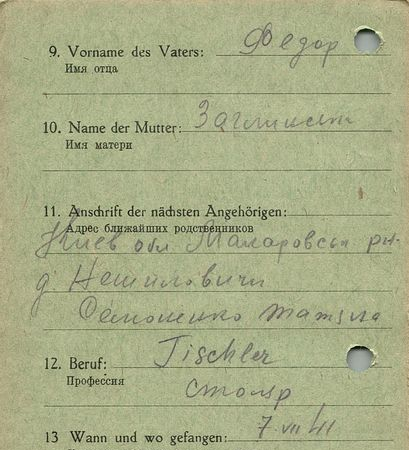 9. Vorname des Vaters: Федор
Имя отца
10. Name der Mutter:
Имя матери
11. Anschrift der nächsten Angehörigen:
Адрес ближайших родственников
Киев обл. Макаровськ рн.
д Нежиловичи
12. Beruf: Tischler
Профессия
столяр
13 Wann und wo gefangen: 7 VII 41